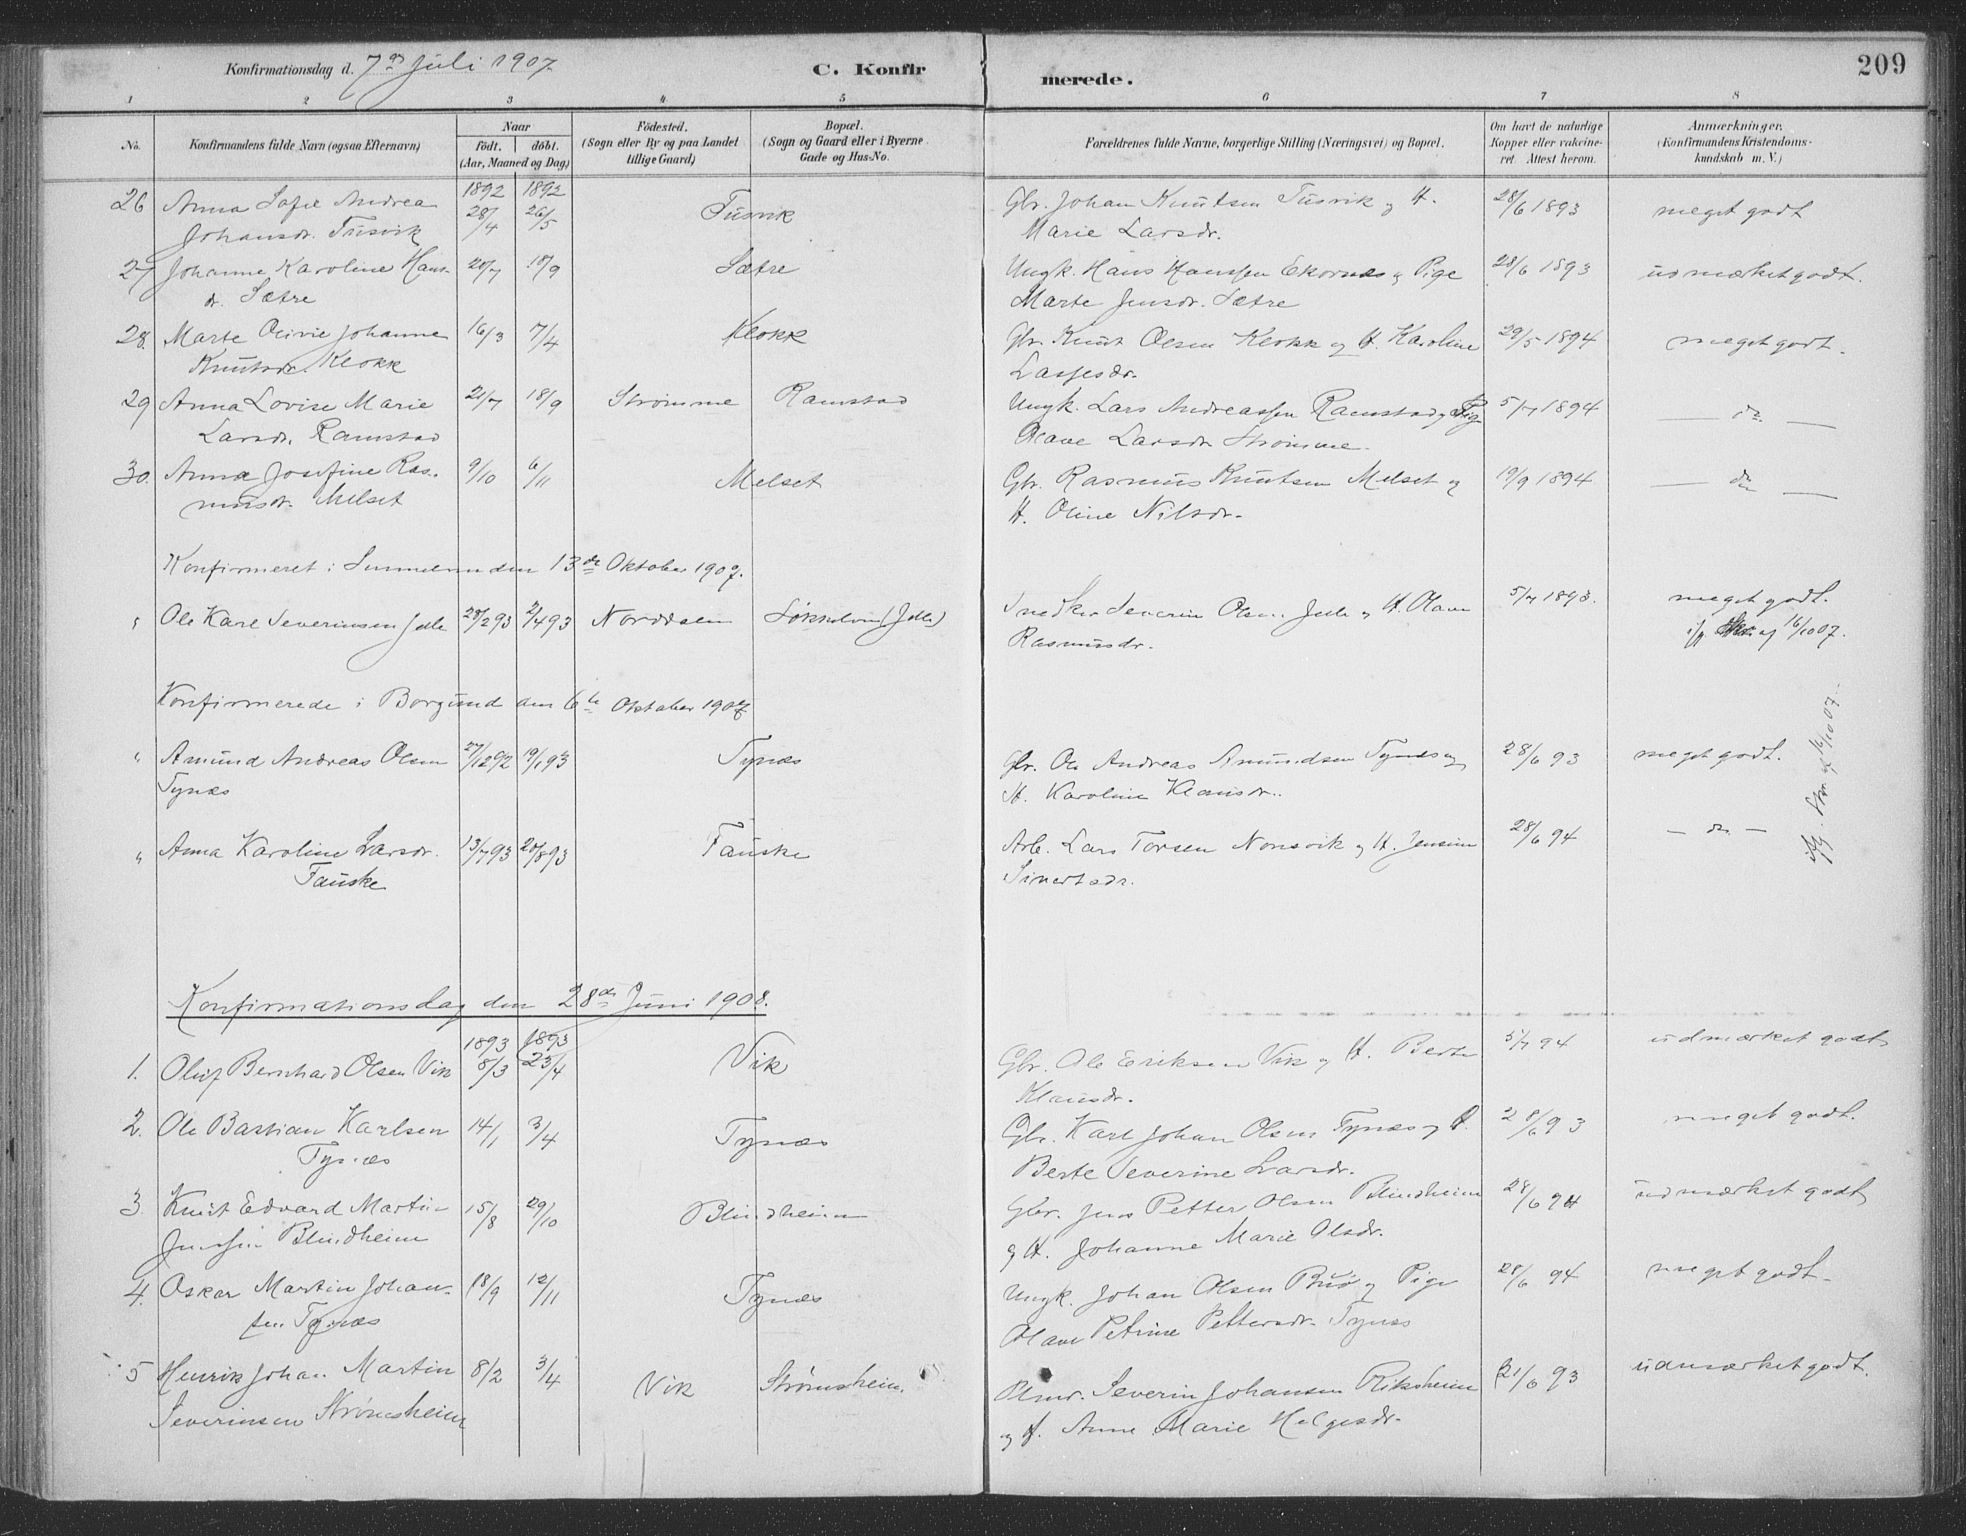 Konfirmationsdag d. 7de Juli 1907. C. Konfirmerede. 209
1 2 3 4 5 6 7 8
No. Konfirmandens fulde Navn (ogsaa Efternavn) Naar født. døbt. (Aar, Maaned og Dag) Fødested. (Sogn eller By og paa Landet tillige Gaard) Bopæl. (Sogn og Gaard eller i Byerne Gade og Hus-No. Forældrenes fulde Navne, borgerlige Stilling (Næringsvei) og Bopæl. Om havt de naturlige Kopper eller vakcineret. Attest herom. Anmærkninger. (Konfirmandens Kristendomskundskab m. V.)
1892 1892
26 Anna Sofie Andrea 28/4 26/5 Tusvik Gbr. Johan Knutsen Tusvik og H. 28/6 1893 meget godt
Johansdr. Tusvik Marie Larsdr.
27 Johanne Karoline Hans- 20/7 18/9 Sætre Ungk. Hans Hanssen Ekornæs og Pige 28/6 1893 udmærket godt.
dr. Sætre Marte Jensdr. Sætre
28. Marte Olivie Johanne 16/3 7/4 Klokk Gbr. Knut Olsen Klokk og H. Karoline 29/5 1894 meget godt.
Knutsdr. Klokk Lassesdr.
29 Anna Lovise Marie 21/7 18/9 Strømme Ramstad Ungk. Lars Andreassen Ramstad og Pig 5/7 1894 — do —
Larsdr. Ramstad Olave Larsdr. Strømme.
30. Anna Josefine Ras- 9/10 6/11 Melset Gbr. Rasmus Knutsen Melset og 19/9 1894 — do —
musdr. Melset H. Oline Nilsdr.
Konfirmeret i den 13de Oktober 1907.
Ole Karl Severinsen 28/2 93 2/4 93 Snedker Severin Olsen og H. Olave 5/7 1893. meget godt.
Rasmusdr. af 16/10 07.
Konfirmerede i Borgund den 6te Oktober 1907
" Amund Andreas Olsen 27/12 92 19/1 93 Tynæs Gbr. Ole Andreas Amundsen Tynæs og 28/6 93 meget godt.
Tynæs H. Karoline Klausdr.
" Anna Karoline Larsdr. 13/7 93 20/8 93 Fauske Arb. Lars Torsen Nonsvik og H. Jensine 28/6 94 — do —
Fauske Sivertsdr.
af 16/10 07.
Konfirmationsdag den 28de Juni 1908.
1893 1893
1. Oluf Bernhard Olsen Vik 8/3 23/4 Vik Gbr. Ole Eriksen Vik og H. Berte 5/7 94 udmærket godt
Klausdr.
2. Ole Bastian Karlsen 14/1 3/4 Tynæs Gbr. Karl Johan Olsen Tynæs og H. 28/6 93 meget godt.
Tynæs Berte Severine Larsdr.
3. Knut Edvard Martin 15/8 29/10 Blindheim Gbr. Jens Petter Olsen Blindheim 28/6 94 udmærket godt
Jenssen Blindheim og H. Johanne Marie Olsdr.
4. Oskar Martin Johan- 18/9 12/11 Tynæs Ungk. Johan Olsen Buø og Pige 28/6 94 meget godt.
sen Tynæs Olave Petrine Pettersdr. Tynæs
5 Henrik Johan Martin 8/2 3/4 Vik Strømsheim. Severin Johansen Riksheim 21/6 93 udmærket godt.
Severinsen Strømsheim og H. Anne Marie Helgesdr.